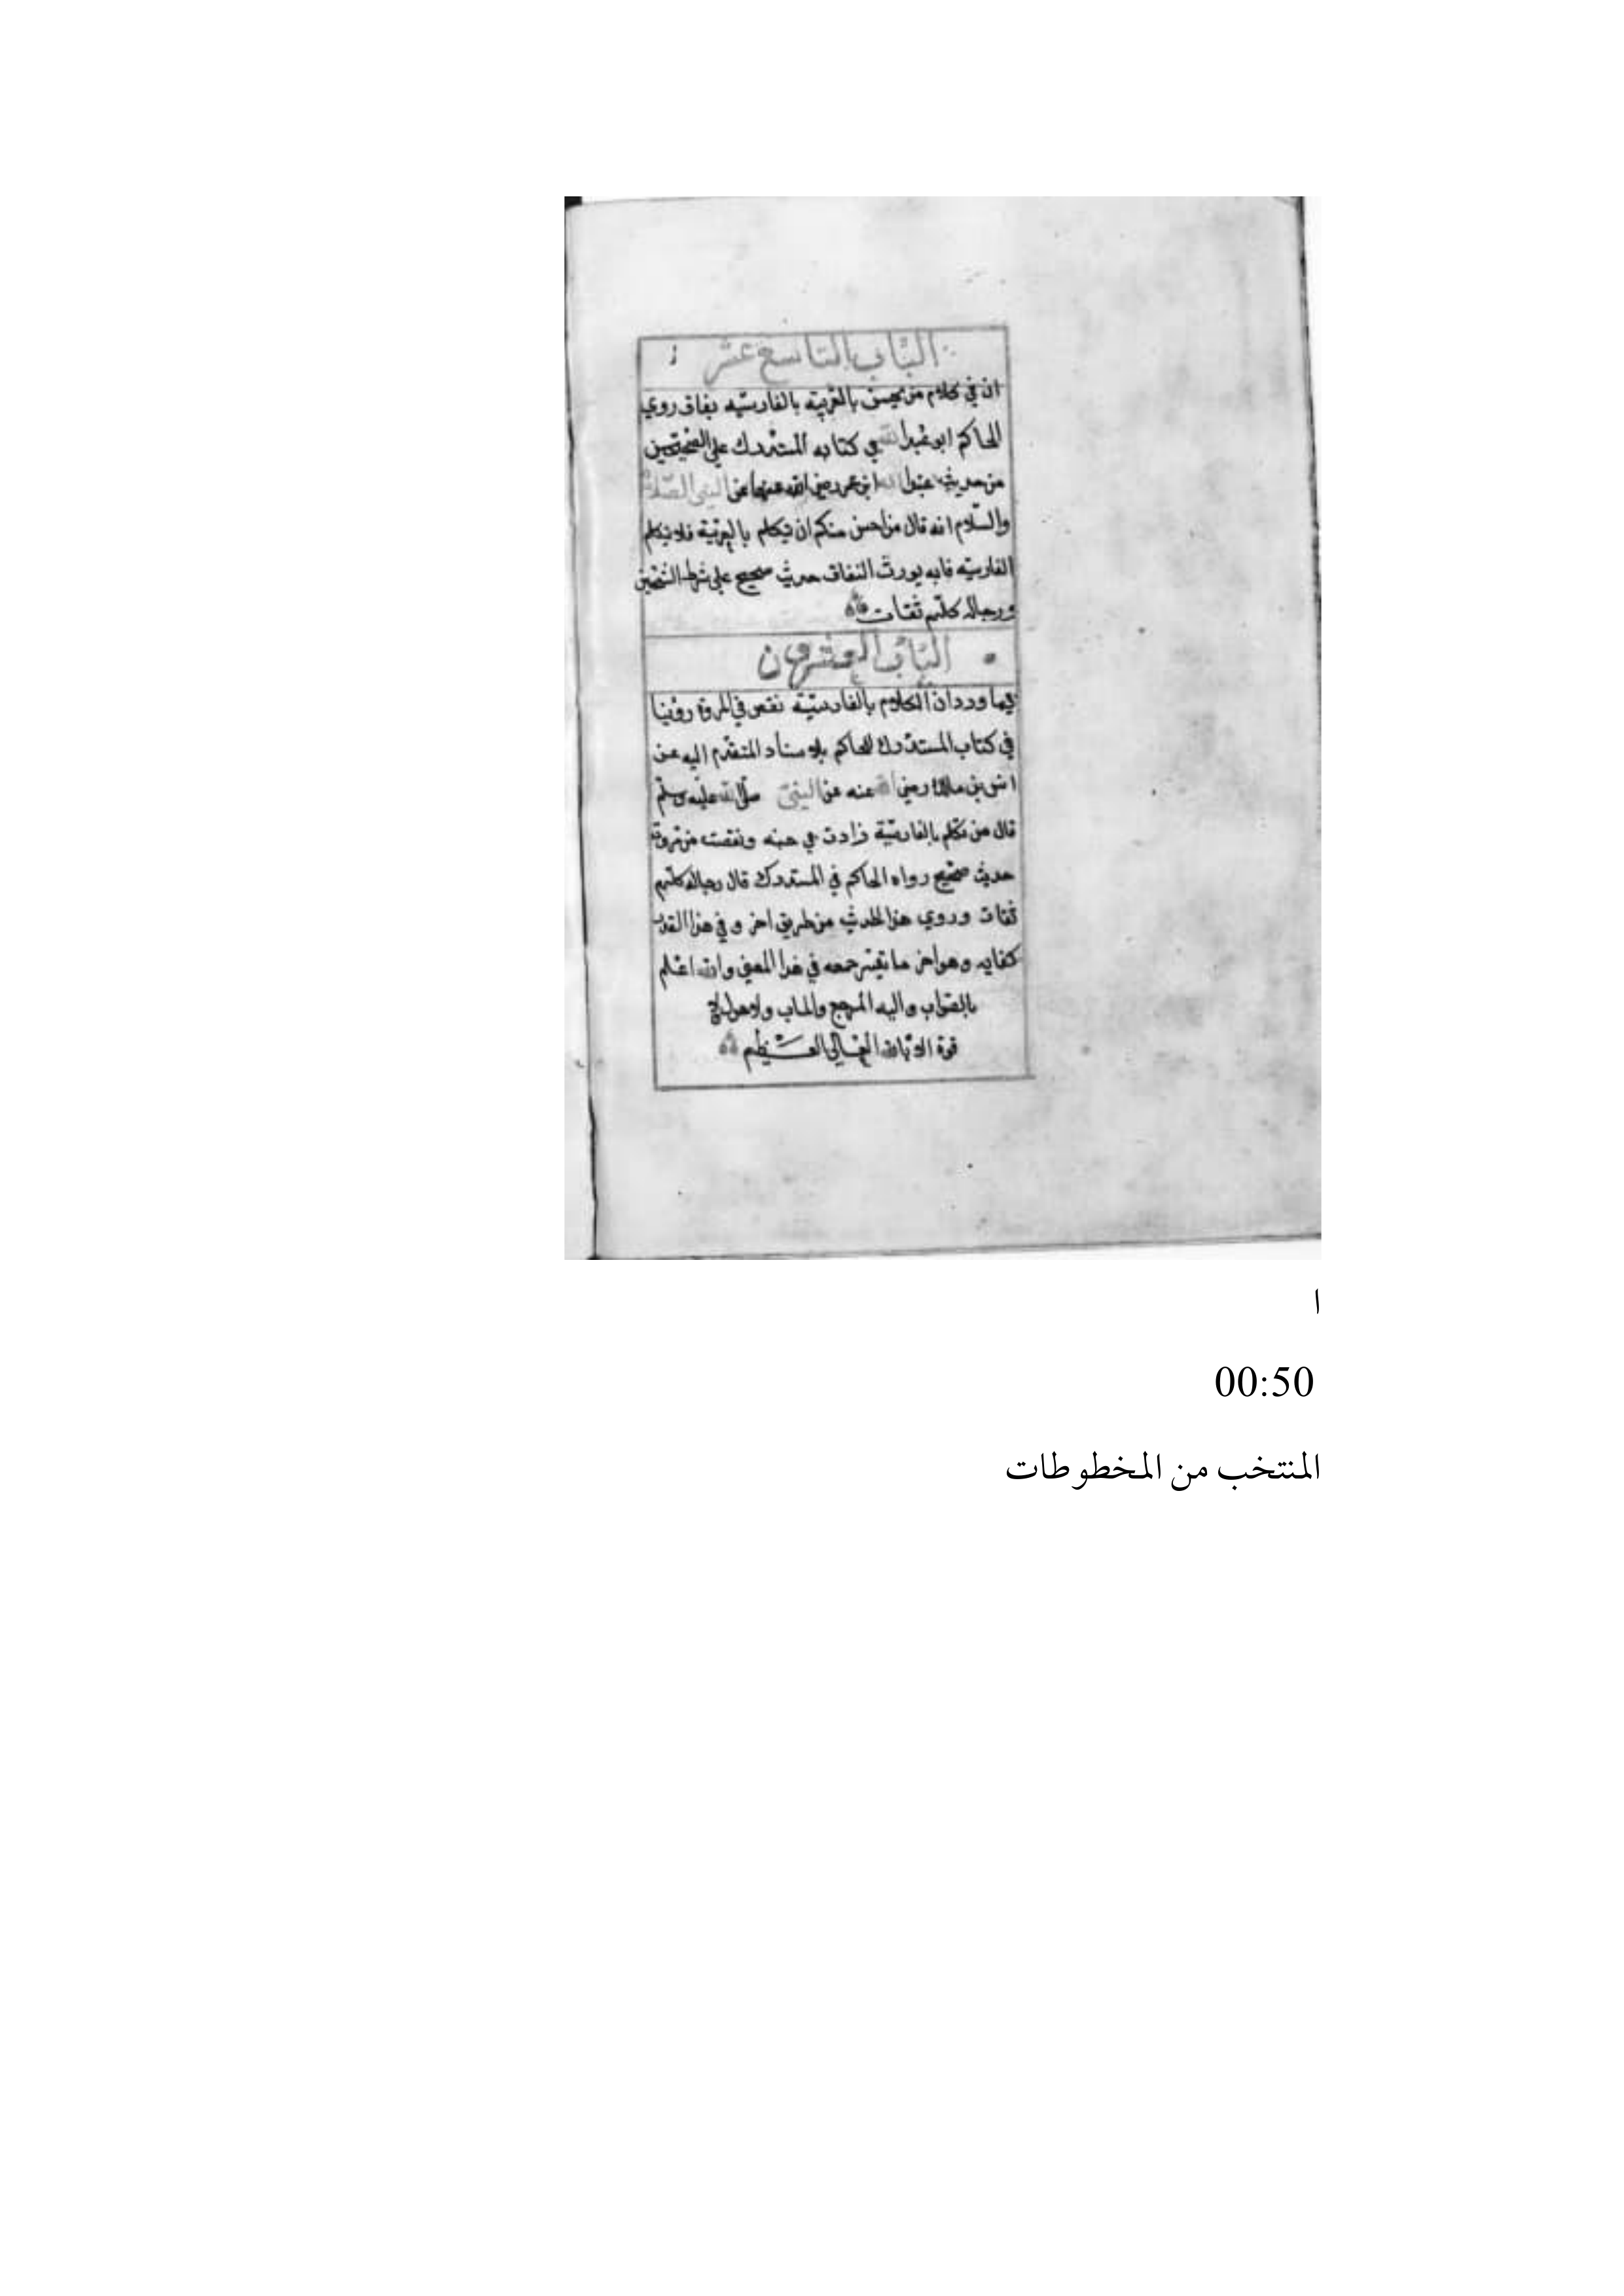 الباب التاسع عشر
ان في كلام من يحسن بالعربية بالفارسيه نفاق روي
الحاكم ابو عبدالله في كتابه المستدرك على الصحيحين
من حديث عبدالله ابن عمر رضي الله عنهما عن النبي الصلاة
والسلام انه قال من احسن منكم ان يتكلم بالعربية فلا يتكلم
الفارسيه فانه يورث النفاق حديث صحيح على شرط الشيخين
ورجاله كلهم ثقات
الباب العشرون
فيما ورد ان الكلام بالفارسية نقص في المروة روينا
في كتاب المستدرك للحاكم بلاسناد المتقدم اليه عن
انس بن مالك رضي الله عنه عن النبي صلى الله عليه وسلم
قال من تكلم بالفارسية زادت في خبه ونقصت من مروته
حديث صحيح رواه الحاكم في المستدرك قال رجاله كلهم
ثقات وروي هذا الحديث من طريق اخر وفي هذا القدر
كفايه وهو اخر ما تيسر جمعه في هذا المعنى والله اعلم
بالصواب واليه المرجع والماب ولا حول ولا
قوة الا بالله العالي العظيم
ا
00:50
المنتخب من المخطوطات